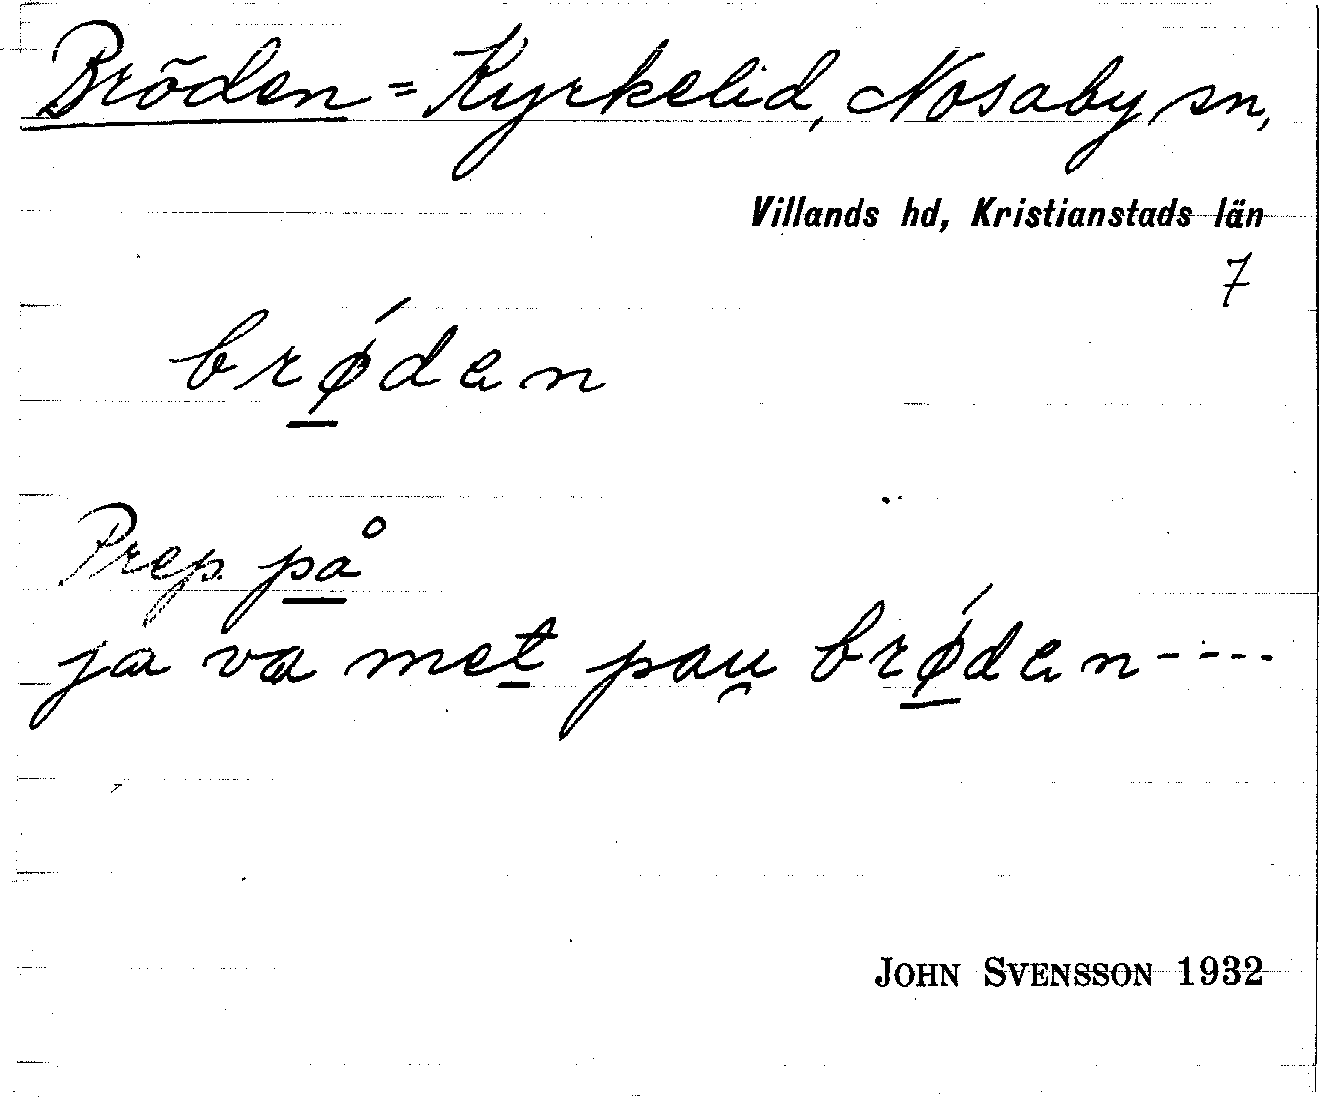 Bröden = Kyrkelid, Nosaby sn,
Villands hd, Kristianstads län
7
brǿ̲dan
Prep. på
ja va met̲ pau̯ brǿ̲dan ----
JOHN SVENSSON 1932